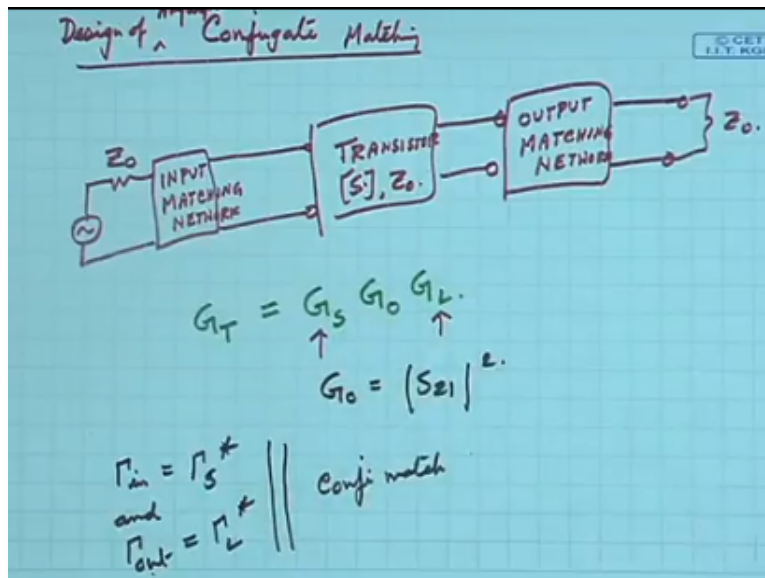 Design of ^ Conjugate Matching
© CET
I.I.T. KG
Z₀
INPUT
MATCHING
NETWORK
TRANSISTOR
[S], Z₀.
OUTPUT
MATCHING
NETWORK
Z₀.
G_T = G_S G₀ G_L.
↑ ↑
G₀ = |S₂₁|².
Γ_in = Γ_S*
and
Γ_out = Γ_L*
Conj. match